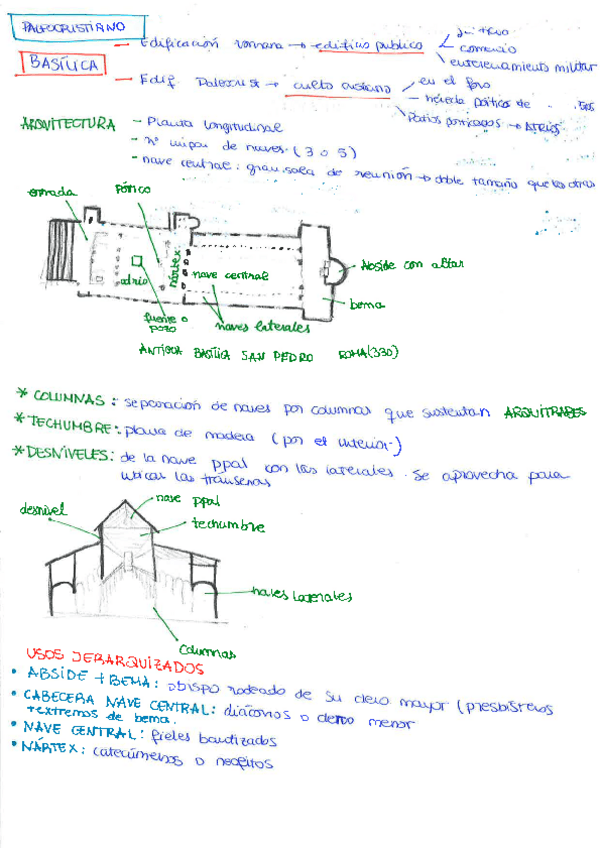 PALEOCRISTIANO
BASÍLICA
— Edificación romana → edificio publico
comercio
entrenamiento militar
— Edif. Paleocrist → culto cristiano
en el foro
hereda pórtico de
Patios porticados → ATRIOS
ARQUITECTURA – Planta longitudinal
– nº impar de naves (3 o 5)
– nave central: gran sala de reunión → doble tamaño que las otras
entrada
pórtico
nártex
nave central
Abside con altar
atrio
bema
fuente o pozo
naves laterales
ANTIGUA BASÍLICA SAN PEDRO ROMA (330)
* COLUMNAS: separación de naves por columnas que sustentan ARQUITRABES
* TECHUMBRE: plana de madera (por el interior)
* DESNIVELES: de la nave ppal con las laterales. Se aprovecha para
ubicar las tránsenas
nave ppal
desnivel
techumbre
naves laterales
Columnas
USOS JERARQUIZADOS
• ABSIDE + BEMA: obispo rodeado de su clero mayor (presbísteros
• CABECERA NAVE CENTRAL: diáconos o clero menor
+extremos de bema.
• NAVE CENTRAL: fieles bautizados
• NÁRTEX: catecúmenos o neofitos